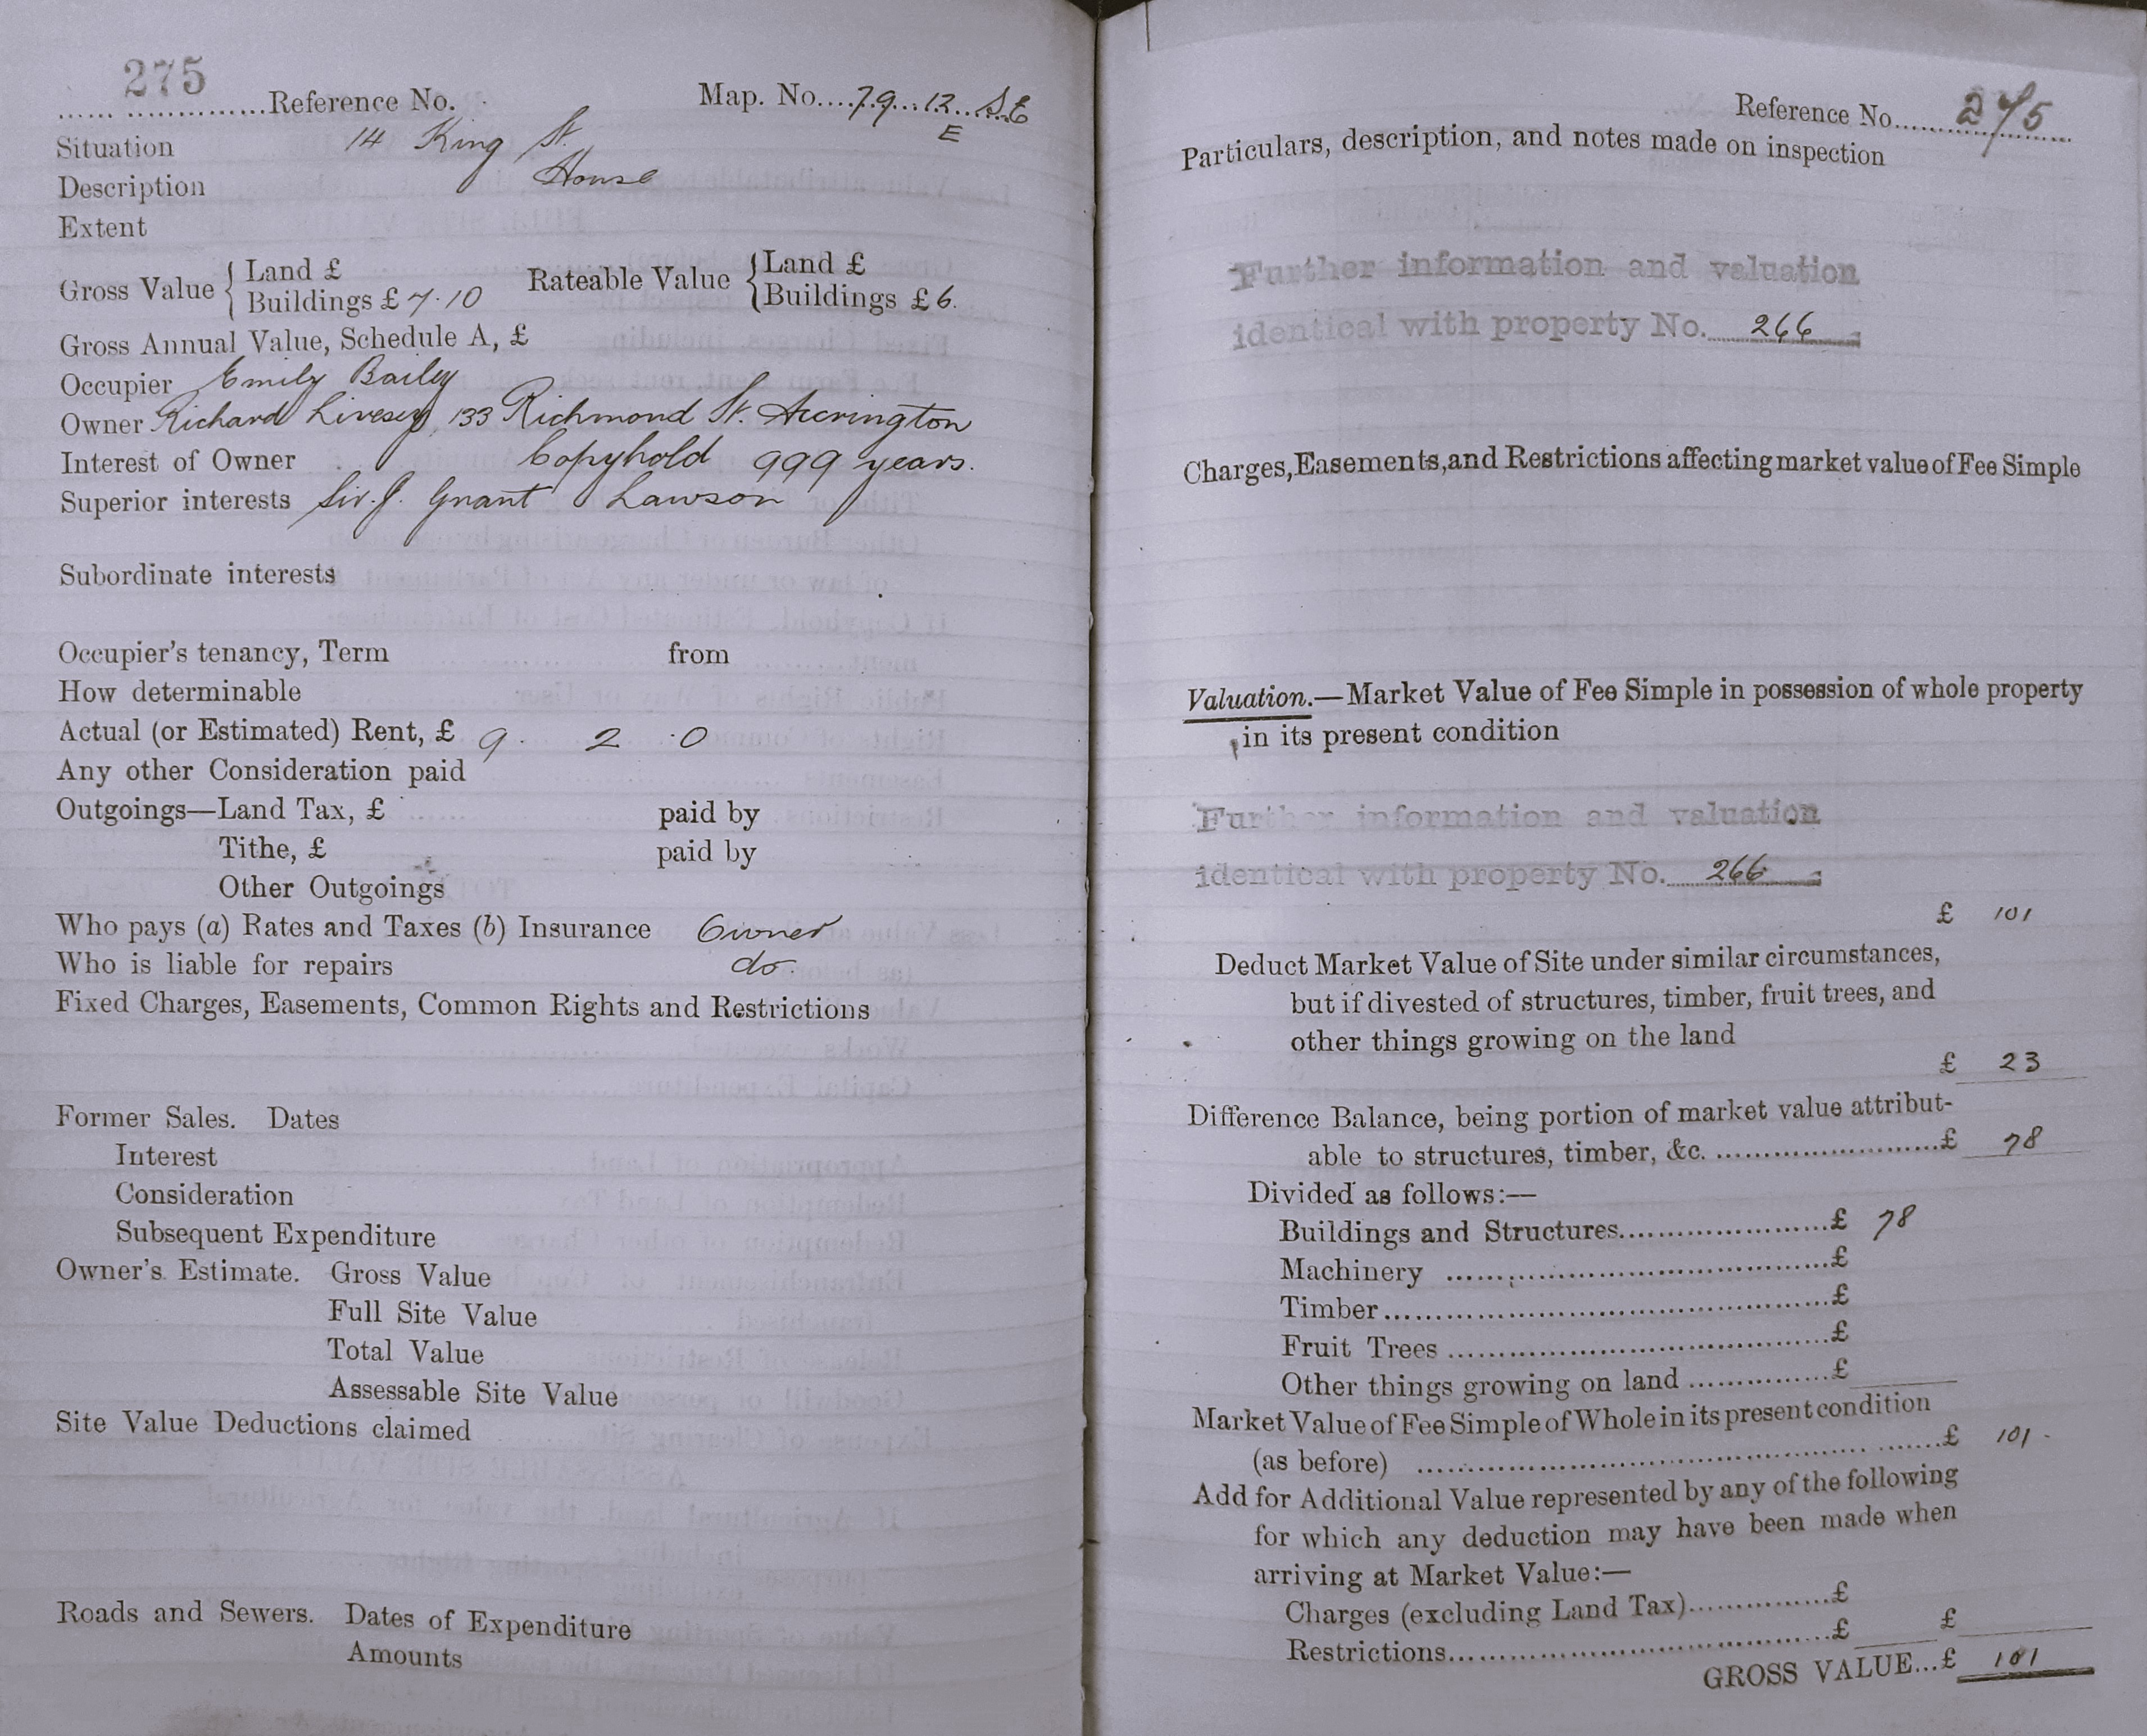 275
...... ...............Reference No. Map. No....79...12...S.E
E
Situation 14 King St.
Description House
Extent
Gross Value { Land £
Buildings £ 7.10
Rateable Value { Land £
Buildings £ 6.
Gross Annual Value, Schedule A, £
Occupier Emily Bailey
Owner Richard Livesey, 133 Richmond St. Accrington
Interest of Owner Copyhold 999 years.
Superior interests Sir. J. Grant Lawson
Subordinate interests
Occupier's tenancy, Term from
How determinable
Actual (or Estimated) Rent, £ 9. 2 .0
Any other Consideration paid
Outgoings—Land Tax, £ paid by
Tithe, £ paid by
Other Outgoings
Who pays (a) Rates and Taxes (b) Insurance Owner
Who is liable for repairs do.
Fixed Charges, Easements, Common Rights and Restrictions
Former Sales. Dates
Interest
Consideration
Subsequent Expenditure
Owner's Estimate. Gross Value
Full Site Value
Total Value
Assessable Site Value
Site Value Deductions claimed
Roads and Sewers. Dates of Expenditure
Amounts
Reference No. 275
Particulars, description, and notes made on inspection
Further information and valuation
identical with property No. 266
Charges, Easements, and Restrictions affecting market value of Fee Simple
Valuation.—Market Value of Fee Simple in possession of whole property
in its present condition
Further information and valuation
identical with property No. 266
£ 101
Deduct Market Value of Site under similar circumstances,
but if divested of structures, timber, fruit trees, and
other things growing on the land
£ 23
Difference Balance, being portion of market value attribut-
able to structures, timber, &c. ........................£ 78
Divided as follows:—
Buildings and Structures......................£ 78
Machinery ........................................£
Timber..............................................£
Fruit Trees ........................................£
Other things growing on land ...............£
Market Value of Fee Simple of Whole in its present condition
(as before) ........................................£ 101.
Add for Additional Value represented by any of the following
for which any deduction may have been made when
arriving at Market Value:—
Charges (excluding Land Tax)...............£
Restrictions.......................................£ £
GROSS VALUE...£ 101